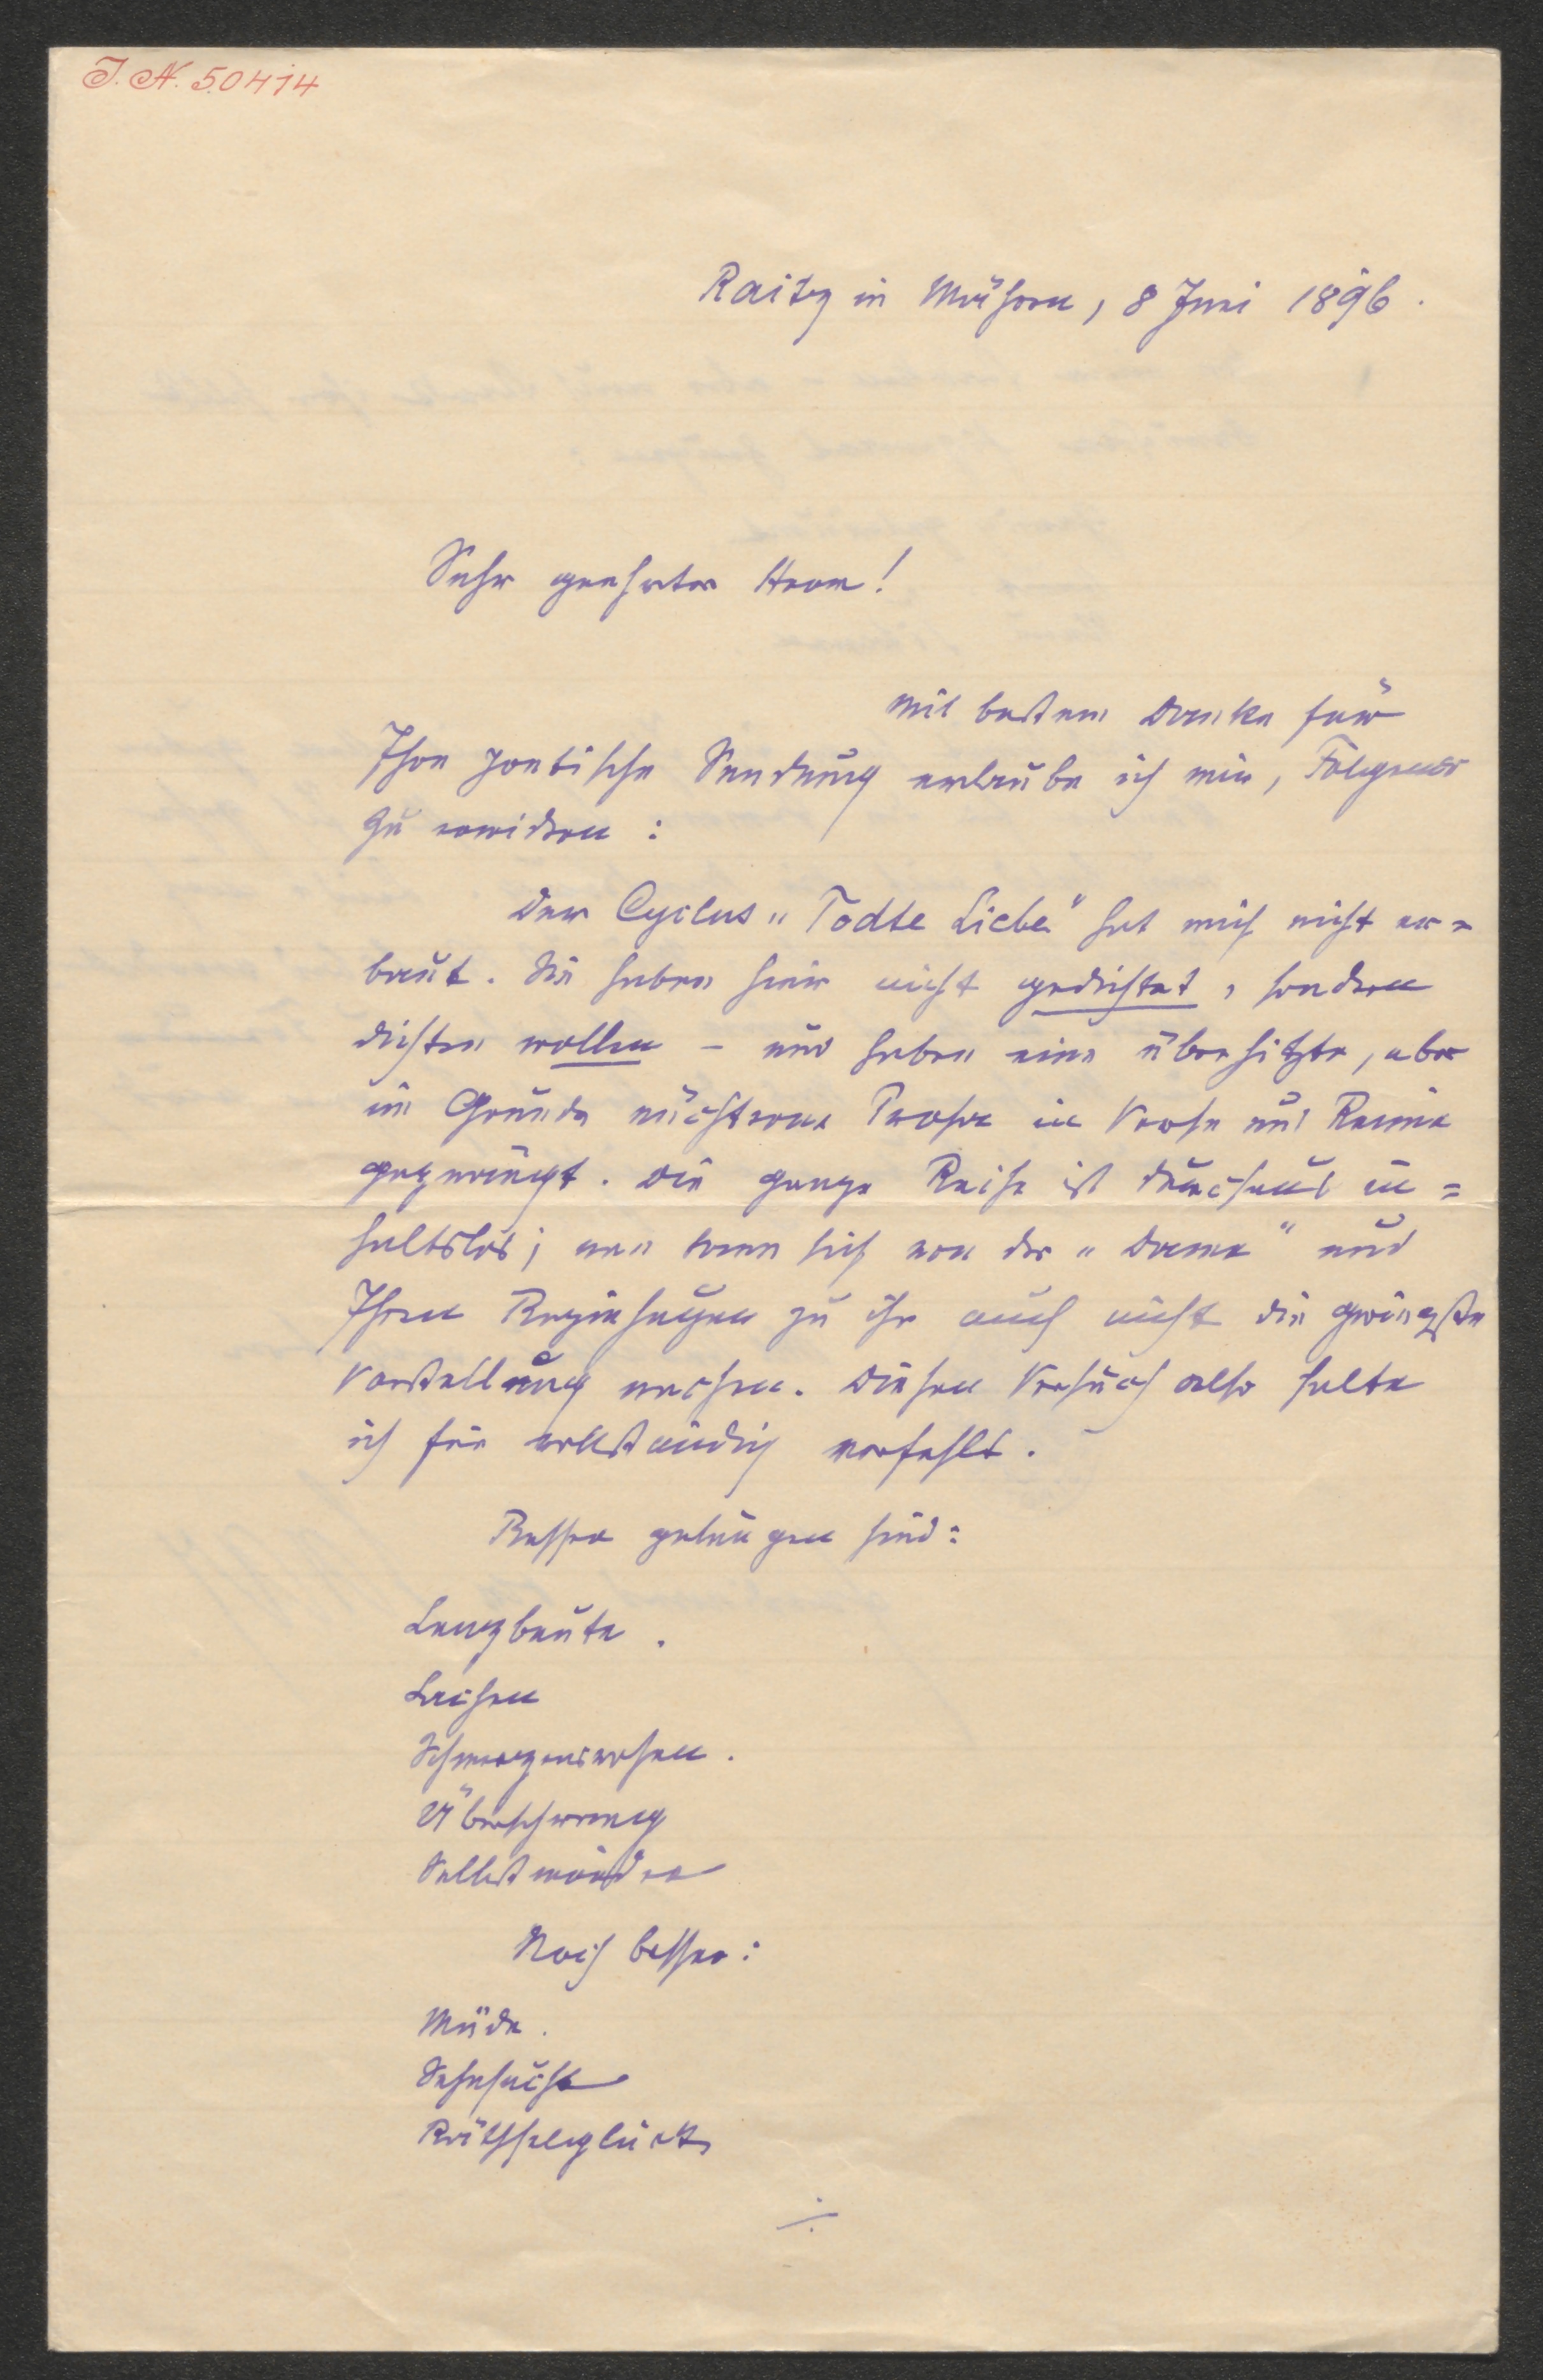 J. N. 50414
Raitz in Mähren, 8 Juni 1896.
Sehr geehrter Herr!
Mit bestem Danke für
Ihre poetische Sendung erlaube ich mir, Folgendes
zu erwidern:
Der Cyclus „Todte Liebe" hat mich nicht er=
baut. Sie haben hier nicht gedichtet, sondern
dichten wollen – und haben eine überhitzte, aber
im Grunde nüchterne Prosa in Verse und Reime
gezwängt. Die ganze Reihe ist durchaus in=
haltslos; man kann sich von der „Dame" und
Ihren Beziehungen zu ihr auch nicht die geringste
Vorstellung machen. Diesen Versuch also halte
ich für vollständig verfehlt.
Besser gelungen sind:
Lenzbeute.
Lachen
Schmerzensrosen.
Überschwang
Selbstmörder
Noch besser:
Müde.
Sehnsucht
Räthselglück